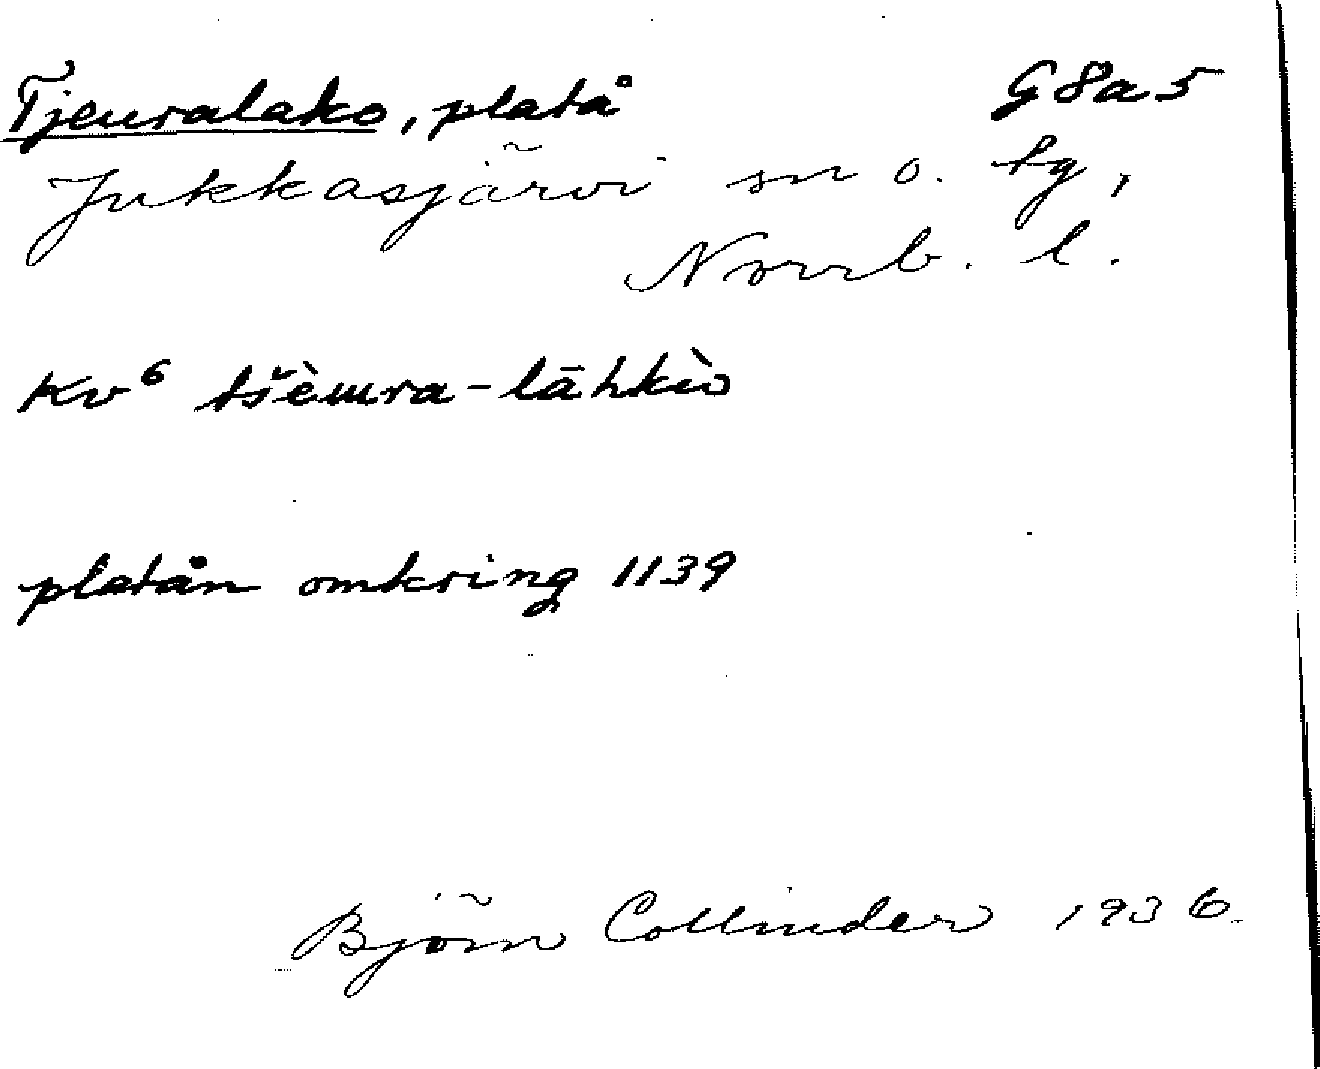 Tjeuralako, platå G8a5
Jukkasjärvi sn o. tg,
Norrb. l.
Kv⁶ tšèura-lāhkò
platån omkring 1139
Björn Collinder 1936.